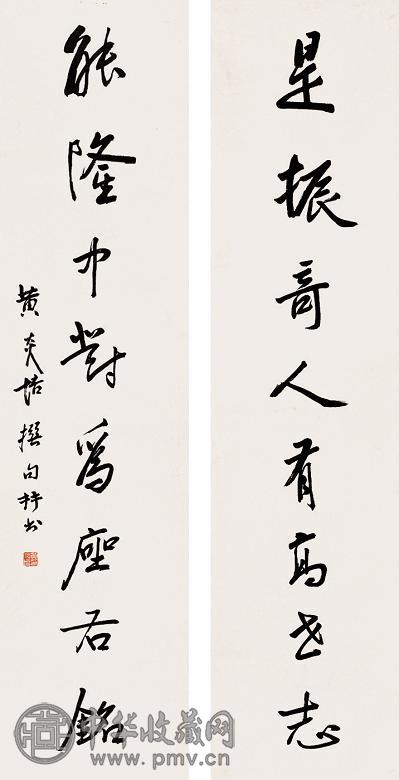 是振奇人有高世志
能隆中對爲座右銘
黄炎培撰句并书
中华收藏网
www.pmv.cn